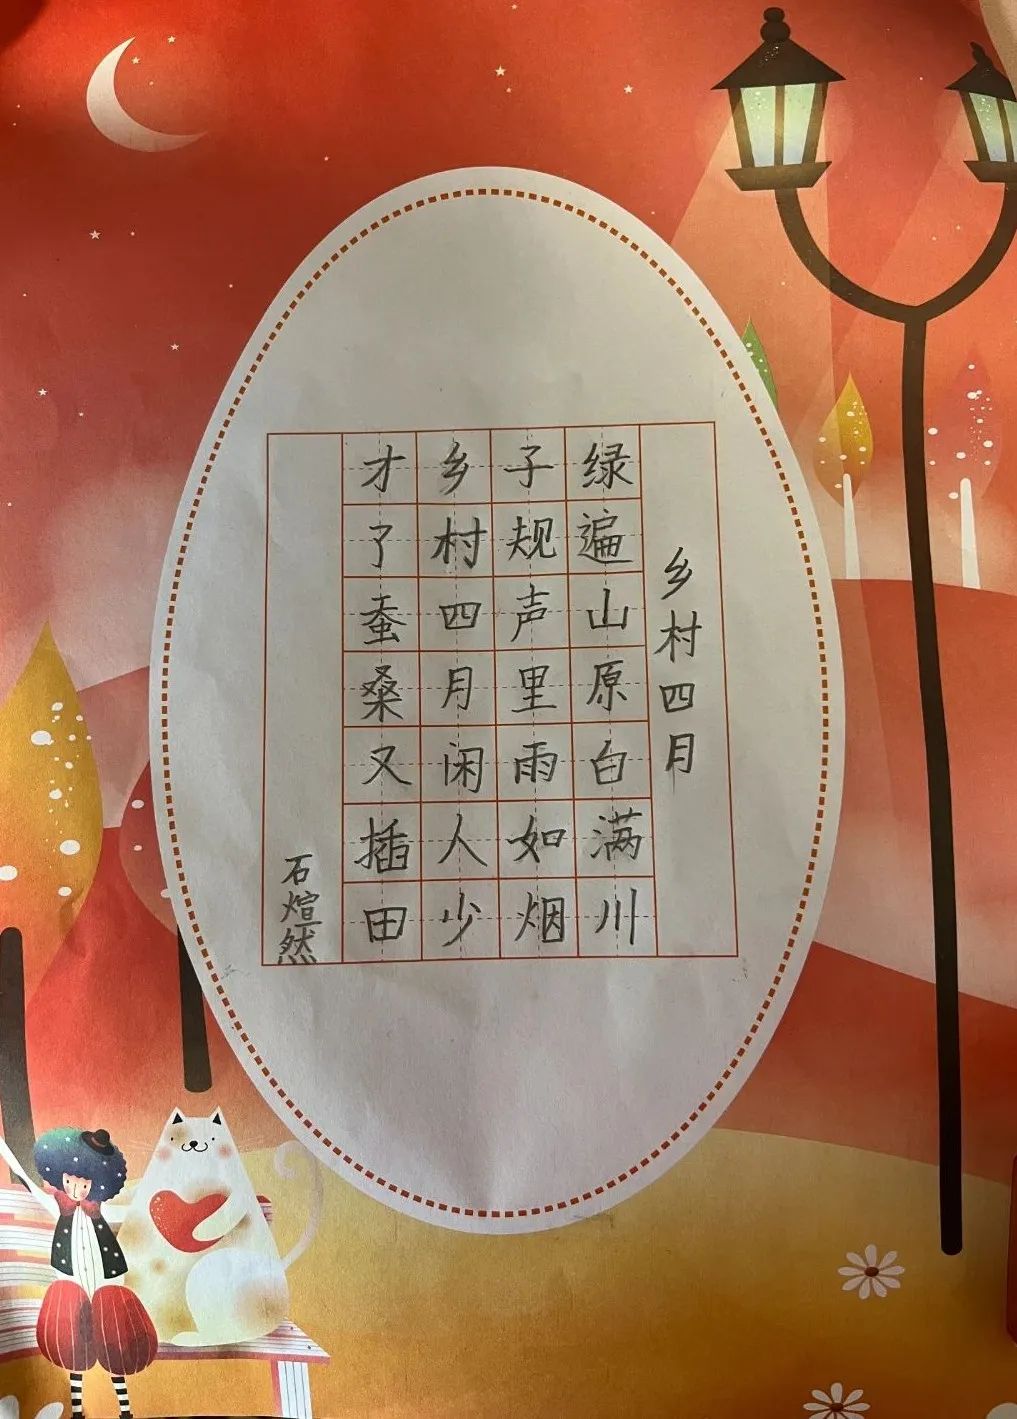 乡村四月
绿遍山原白满川
子规声里雨如烟
乡村四月闲人少
才了蚕桑又插田
石煊然